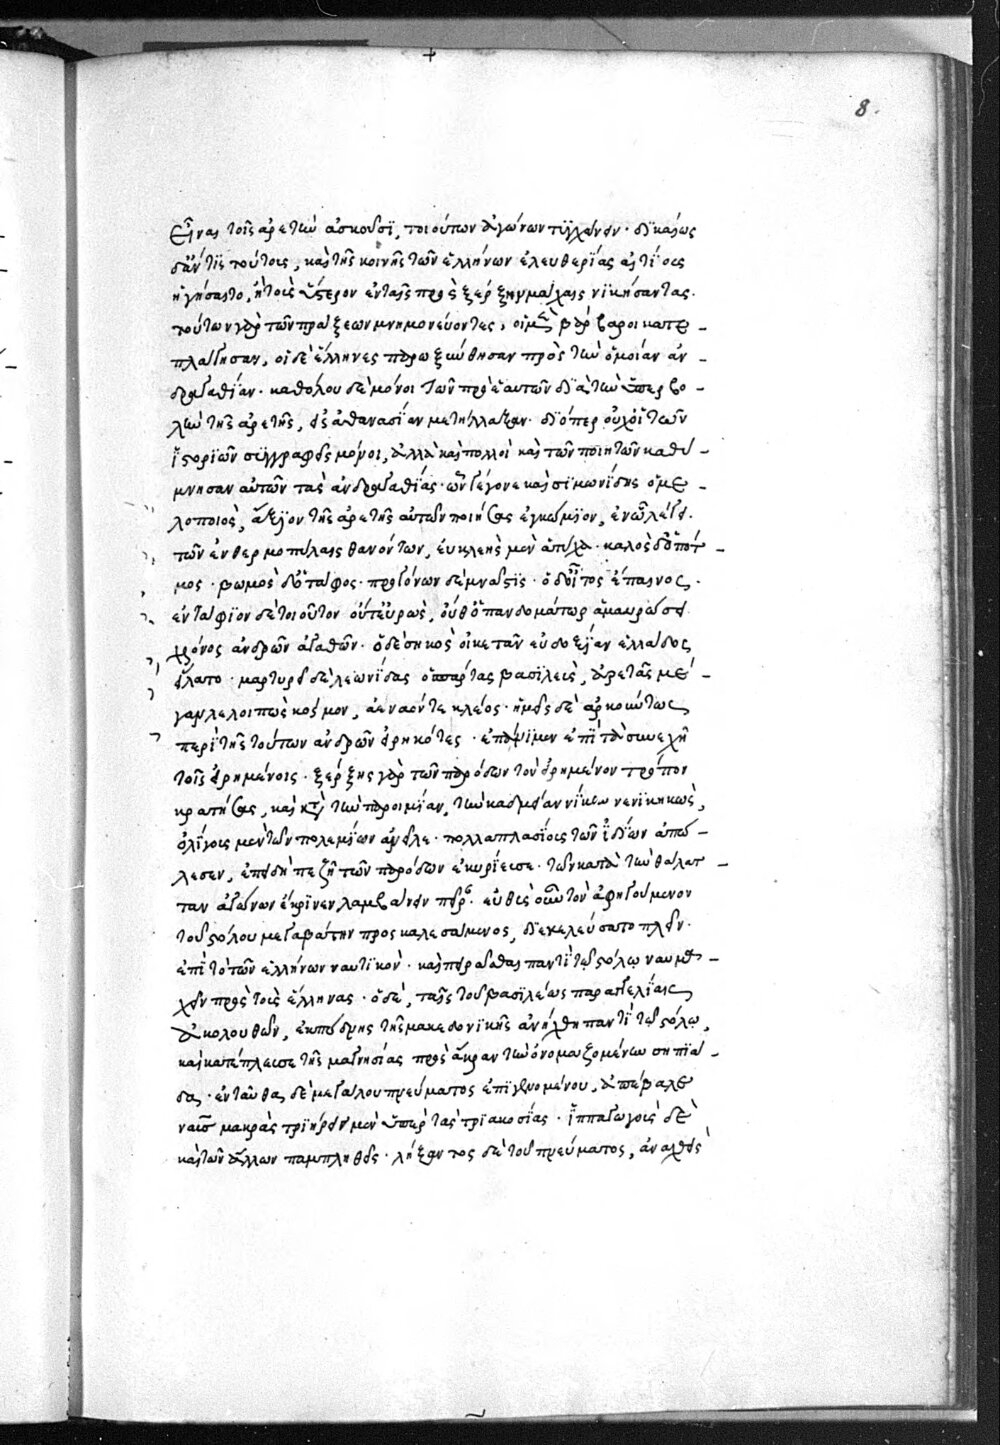 8.
εἶναι τοῖς ἀρετὴν ἀσκοῦσι, τοιούτων ἀγώνων τυγχάνειν· δικαίως
δ' ἄν τις τούτοις, καὶ τῆς κοινῆς τῶν ἑλλήνων ἐλευθερίας αἰτίους
ἡγήσαιτο, ἢ τοὺς ὕστερον ἐν ταῖς πρὸς ξέρξην μάχαις νικήσαντας.
τούτων γὰρ τῶν πράξεων μνημονεύοντες, οἱ μὲν βάρβαροι κατε-
πλάγησαν, οἱ δὲ ἕλληνες παρωξύνθησαν πρὸς τὴν ὁμοίαν ἀν-
δραγαθίαν· καθόλου δὲ μόνοι τῶν πρὸ ἑαυτῶν διὰ τὴν ὑπερβο-
λὴν τῆς ἀρετῆς, εἰς ἀθανασίαν μετήλλαξαν· διόπερ οὐχ οἱ τῶν
ἱστοριῶν συγγραφεῖς μόνοι, ἀλλὰ καὶ πολλοὶ καὶ τῶν ποιητῶν καθύ-
μνησαν αὐτῶν τὰς ἀνδραγαθίας· ὧν γέγονε καὶ σιμωνίδης ὁ με-
λοποιὸς, ἄξιον τῆς ἀρετῆς αὐτῶν ποιήσας ἐγκώμιον, ἐν ᾧ λέγει·
τῶν ἐν θερμοπύλαις θανόντων, εὐκλεὴς μὲν ἁ τύχα· καλὸς δ' ὁ πότ-
μος· βωμὸς δ' ὁ τάφος· προγόνων δὲ μνᾶστις· ὁ δ' οἶτος ἔπαινος.
ἐντάφιον δὲ τοιοῦτον οὔτ' εὐρὼς, οὔθ' ὁ πανδαμάτωρ ἀμαυρώσει
χρόνος ἀνδρῶν ἀγαθῶν· ὁ δὲ σηκὸς οἰκέταν εὐδοξίαν ἑλλάδος
εἵλατο· μαρτυρεῖ δὲ λεωνίδας ὁ σπάρτας βασιλεὺς, ἀρετᾶς μέ-
γαν λελοιπὼς κόσμον, ἀέναόν τε κλέος· ἡμεῖς δὲ ἀρκούντως
περὶ τῆς τούτων ἀνδρῶν εἰρηκότες· ἐπάνιμεν ἐπὶ τὰ συνεχῆ
τοῖς εἰρημένοις· ξέρξης γὰρ τῶν παρόδων τὸν εἰρημένον τρόπον
κρατήσας, καὶ κατὰ τὴν παροιμίαν, τὴν καδμείαν νίκην νενικηκὼς,
ὀλίγους μὲν τῶν πολεμίων ἀνεῖλε· πολλαπλασίους τῶν ἰδίων ἀπώ-
λεσεν, ἐπειδὴ πεζῇ τῶν παρόδων ἐκυρίευσε· τῶν κατὰ τὴν θάλατ-
ταν ἀγώνων ἔκρινεν λαμβάνειν πεῖραν· εὐθὺς οὖν τὸν ἀφηγούμενον
τοῦ στόλου μεγαβάτην προσκαλεσάμενος, διεκελεύσατο πλεῖν
ἐπὶ τὸ τῶν ἑλλήνων ναυτικόν· καὶ πειρᾶσθαι παντὶ τῷ στόλῳ ναυμα-
χεῖν πρὸς τοὺς ἕλληνας· ὁ δὲ, ταῖς τοῦ βασιλέως παραγγελίαις
ἀκολουθῶν, ἐκ πύδνης τῆς μακεδονικῆς ἀνήχθη παντὶ τῷ στόλῳ,
καὶ κατέπλευσε τῆς μαγνησίας πρὸς ἄκραν τὴν ὀνομαζομένην σηπιά-
δα· ἐνταῦθα δὲ μεγάλου πνεύματος ἐπιγενομένου, ἀπέβαλε
ναῦς μακρὰς τριήρεις μὲν ὑπὲρ τὰς τριακοσίας· ἱππαγωγοὺς δὲ
καὶ τῶν ἄλλων παμπληθεῖς· λήξαντος δὲ τοῦ πνεύματος, ἀναχθεὶς